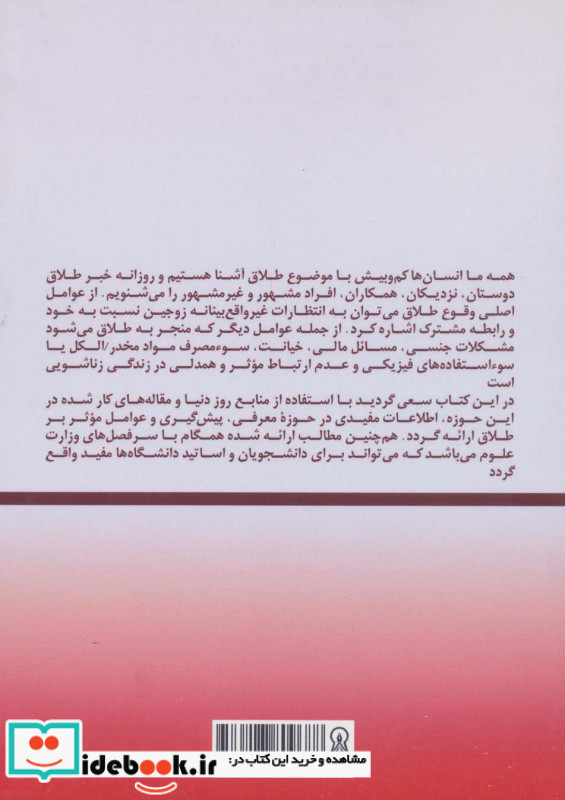 همه ما انسان‌ها کم‌وبیش با موضوع طلاق آشنا هستیم و روزانه خبر طلاق
دوستان، نزدیکان، همکاران، افراد مشهور و غیرمشهور را می‌شنویم. از عوامل
اصلی وقوع طلاق می‌توان به انتظارات غیرواقع‌بینانه زوجین نسبت به خود
و رابطه مشترک اشاره کرد. از جمله عوامل دیگر که منجر به طلاق می‌شود
مشکلات جنسی، مسائل مالی، خیانت، سوءمصرف مواد مخدر/الکل یا
سوءاستفاده‌های فیزیکی و عدم ارتباط مؤثر و همدلی در زندگی زناشویی
است
در این کتاب سعی گردید با استفاده از منابع روز دنیا و مقاله‌های کار شده در
این حوزه، اطلاعات مفیدی در حوزه معرفی، پیش‌گیری و عوامل مؤثر بر
طلاق ارائه گردد. هم‌چنین مطالب ارائه شده همگام با سرفصل‌های وزارت
علوم می‌باشد که می‌تواند برای دانشجویان و اساتید دانشگاه‌ها مفید واقع
گردد
مشاهده و خرید این کتاب در:
idebook.ir